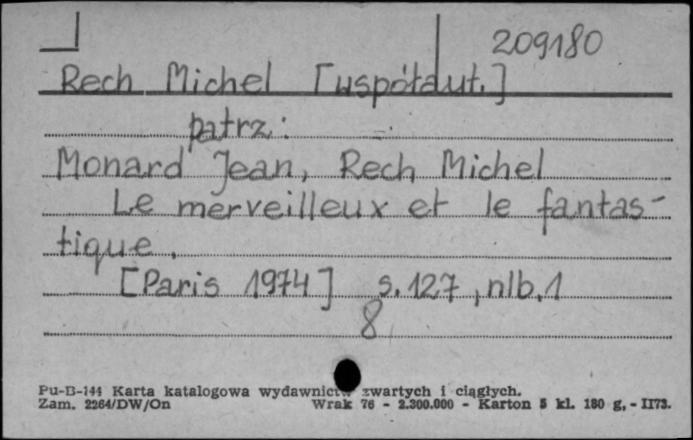 209180
Rech Michel [współaut.]
patrz:
Monard Jean, Rech Michel
Le merveilleux et le fantas-
tique.
[Paris 1974] s. 127, nlb. 1
8
Pu-B-144 Karta katalogowa wydawnictw zwartych i ciągłych.
Zam. 2264/DW/On Wrak 76 - 2.300.000 - Karton 5 kl. 180 g. - II73.